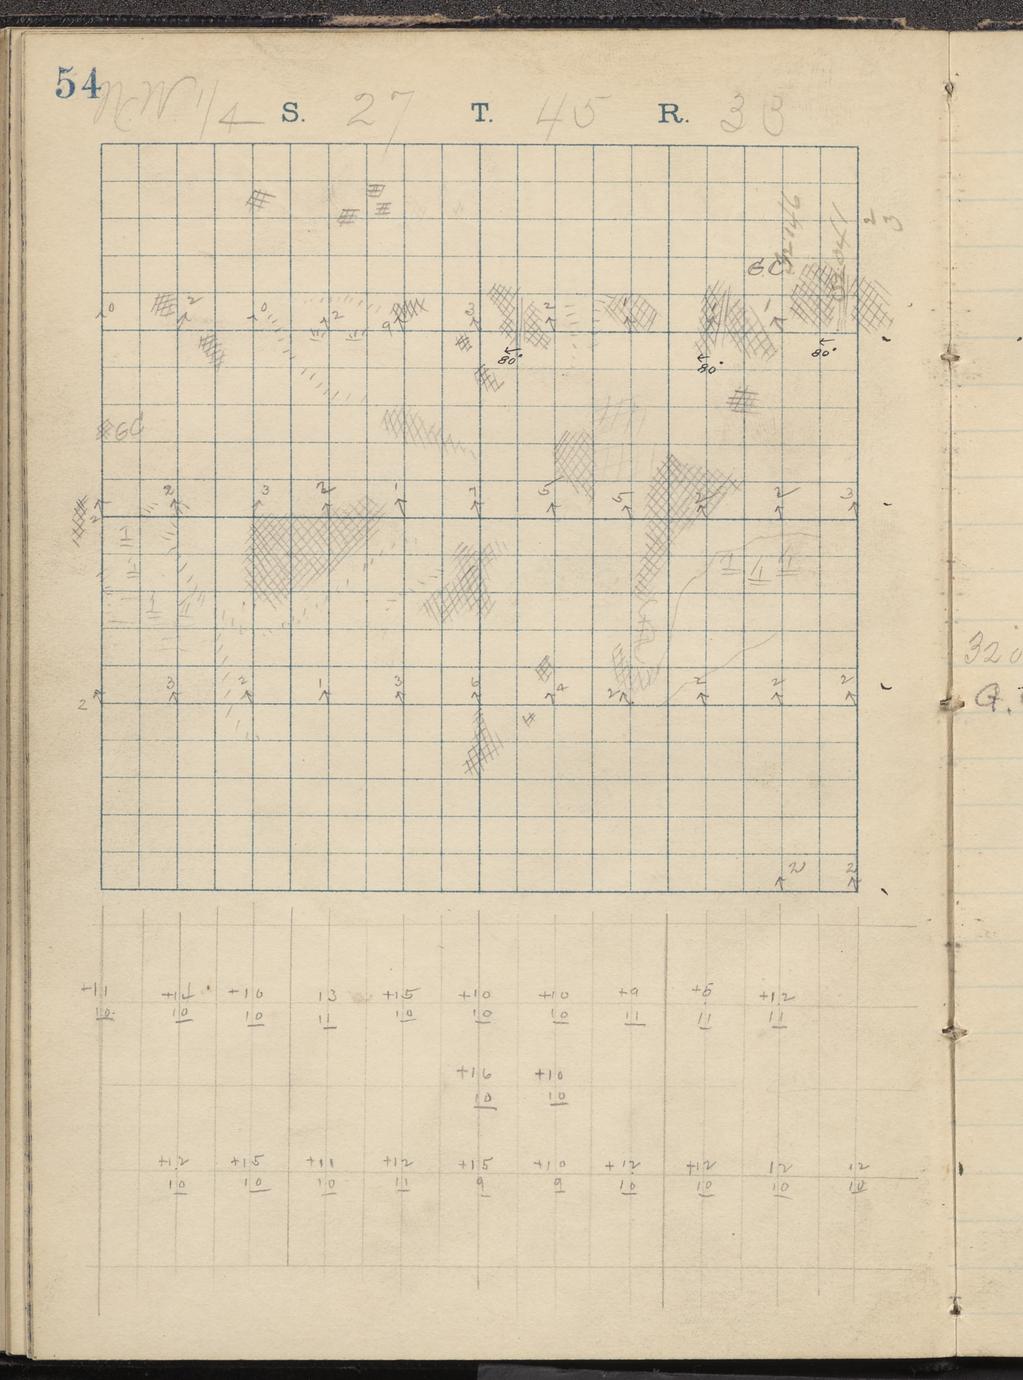 54
NW 1/4 S. 27 T. 45 R. 33
2 3
32046
32041
GC
0 2 0 2 9 3 2 1 1
80° 80° 80°
GC
2 2 3 2 1 7 5 5 2 2 3
320
2 3 2 1 3 5 4 2 2 2 2
G.
2 2
+11 +11 +10 13 +15 +10 +10 +9 +5 +12
10 10 10 11 10 10 10 11 11 11
+16 +10
10 10
+12 +15 +11 +12 +15 +10 +12 +12 12 12
10 10 10 11 9 9 10 10 10 10